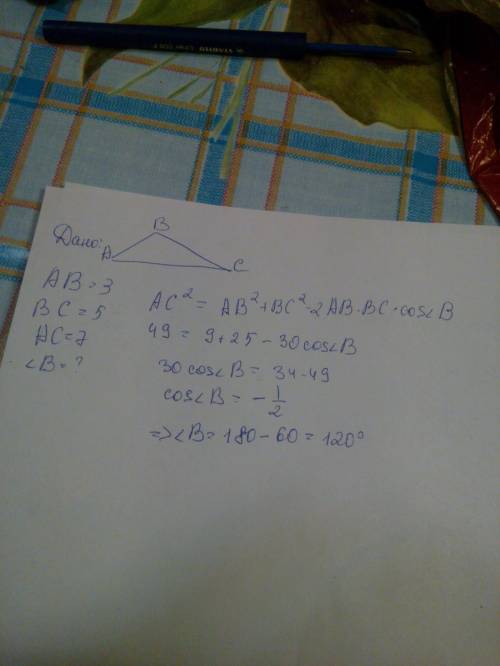 Дано:
B
A
C
AB=3
BC=5
AC=7
∠B=?
AC² = AB²+BC²-2AB·BC·cos∠B
49 = 9+25-30cos∠B
30cos∠B = 34-49
cos∠B = -1/2
=>∠B=180-60=120°
STABILO